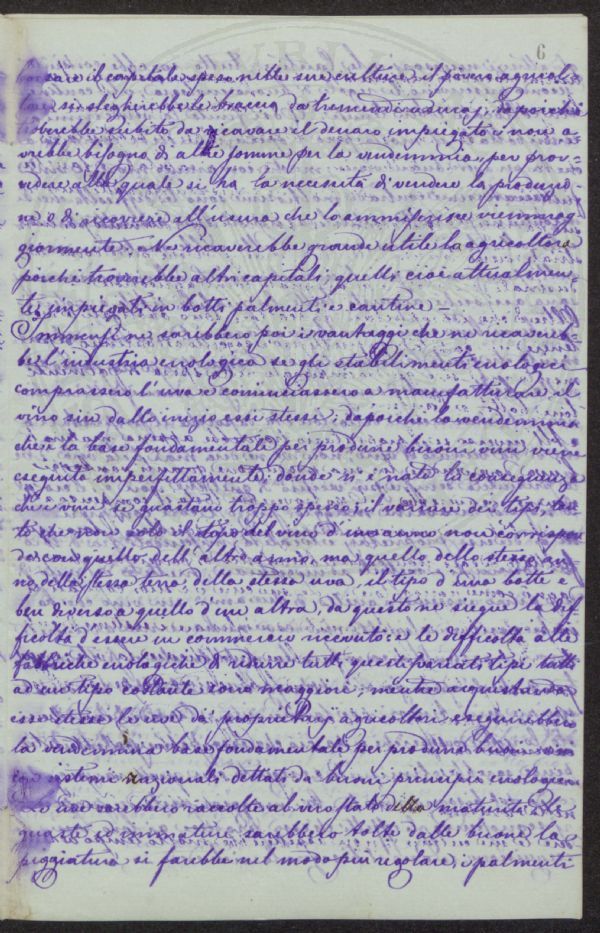 6
il capitale speso nelle sue culture, il povero agricol-
tore si slegherebbe le braccia da tremendi usuraj, dapoichè
subito da ricavare il denaro impiegato e non a-
vrebbe bisogno di altre somme per la vendemmia, per prov-
vedere alle quale si ha la necessità di vendere la produzio-
ne o di ricorrere all'usura che lo ammiserisce viemmag-
giormente. Ne ricaverebbe grande utile la agricoltora
perchè troverebbe altri capitali, quelli cioè attualmen-
te impiegati in botti palmenti e cantine –
Immensi ne sarebbero poi i vantaggi che ne ricavereb-
be l'industria enologica se gli stabilimenti enologici
comprassero l'uva e cominciassero a manufatturare il
vino sin dall'inizio essi stessi, dapoichè la vendemmia
che è la base fondamentale per produrre buoni vini viene
eseguita imperfettamente, donde n'è nata la conseguenza
che i vini si guastano troppo spesso, il variare dei tipi, tan-
to che non solo il tipo del vino d'un anno non corrispon-
de con quello dell'altro anno, ma quello dello stesso an-
no, della stessa terra, della stessa uva, il tipo d'una botte è
ben diverso a quello d'un altra, da questo ne siegue la dif-
ficoltà d'essere in commercio ricevuto: e le difficoltà alle
fabbriche enologiche di ridurre tutti questi svariati tipi tutti
ad un tipo costante sono maggiore, mentre acquistando
esse stesse le uve da' proprietarj agricoltori eseguirebbero
la vendemmia base fondamentale per produrre buoni vini
con sistemi razionali dettati da buoni principii enologici
uve sarebbero raccolte al vero stato della maturità, le
guaste ed immature sarebbero tolte dalle buone, la
pigiatura si farebbe nel modo più regolare, i palmenti